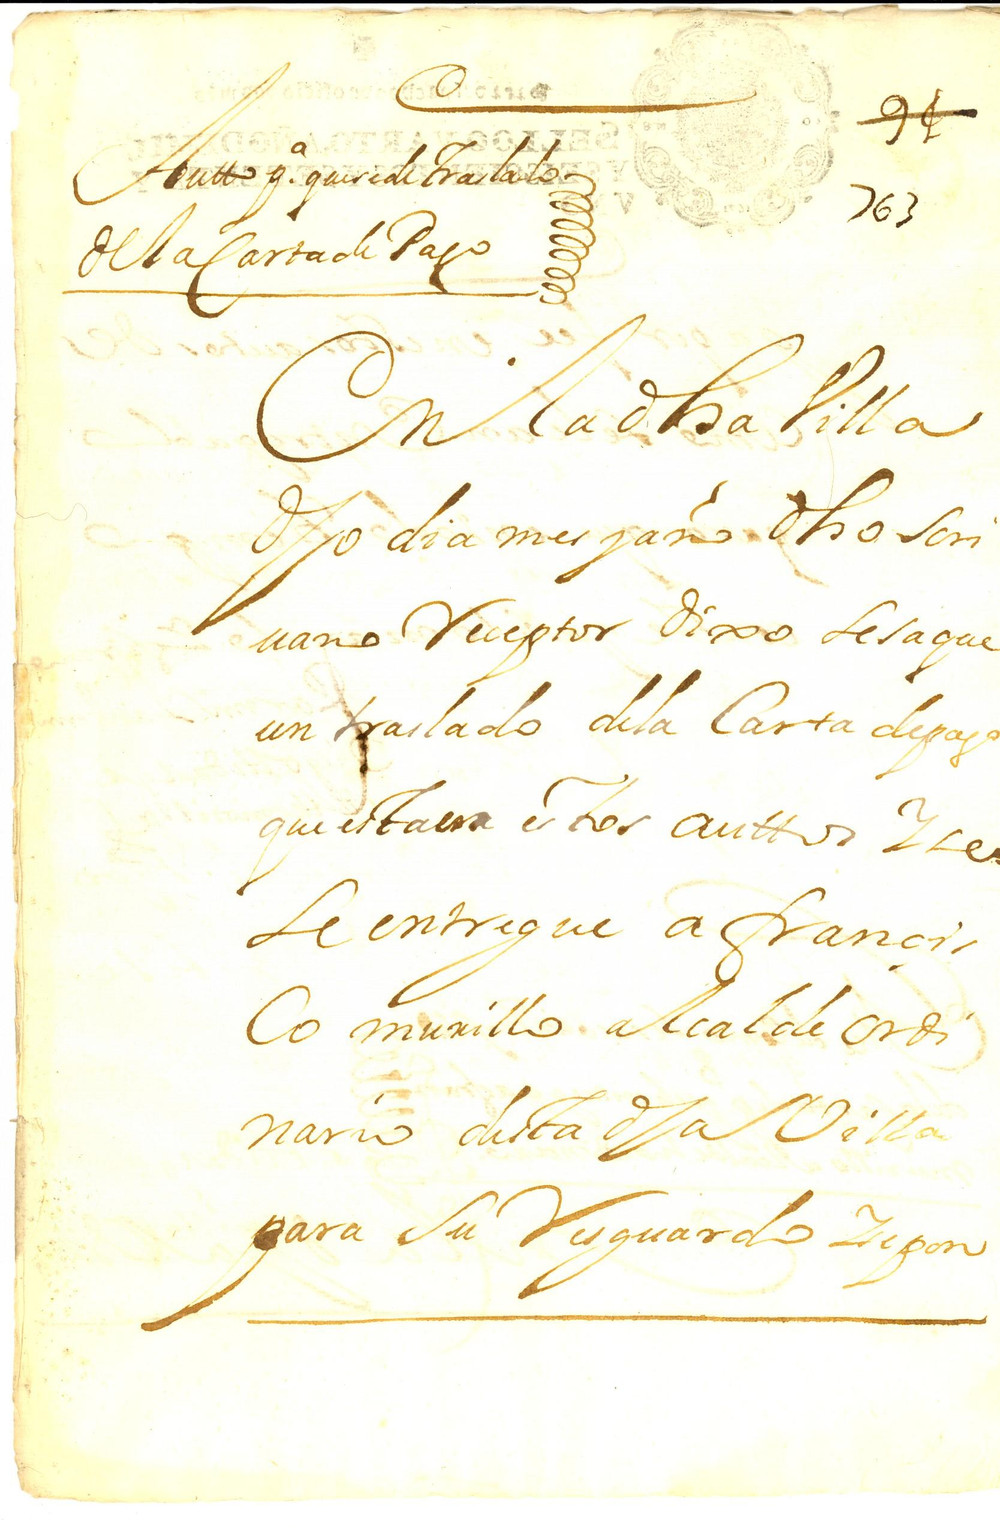 94
763
Autto pª. que se de traslado
de la Carta de Pago
En la dha Villa
dho dia mes y año dho scri
uano Receptor dixo se saque
un traslado dela Carta de pago
que esta en estos auttos Y se
le entregue a françis
Co murillo alcalde ordi
nario desta dha Villa
para su Resguardo Y se pon